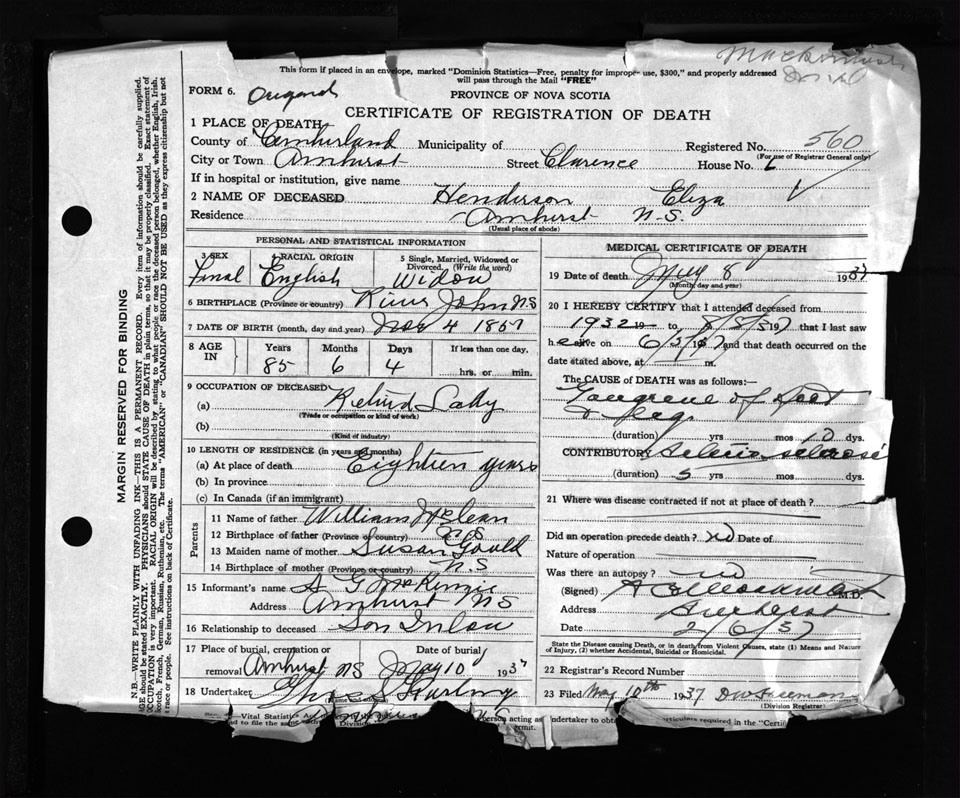 This form if placed in an envelope, marked "Dominion Statistics—Free, penalty for improper use, $300," and properly addressed
will pass through the Mail "FREE"
FORM 6.
PROVINCE OF NOVA SCOTIA
CERTIFICATE OF REGISTRATION OF DEATH
1 PLACE OF DEATH
County of Cumberland Municipality of Registered No. 560
(For use of Registrar General only)
City or Town Amherst Street Clarence House No.
If in hospital or institution, give name
2 NAME OF DECEASED Henderson Eliza
Residence Amherst N.S.
(Usual place of abode)
PERSONAL AND STATISTICAL INFORMATION
3 SEX 4 RACIAL ORIGIN 5 Single, Married, Widowed or Divorced. (Write the word)
English Widow
6 BIRTHPLACE (Province or country) River John N.S
7 DATE OF BIRTH (month, day and year) Nov 4 1851
8 AGE IN Years Months Days If less than one day,
85 6 4 hrs. or min.
9 OCCUPATION OF DECEASED
(a) Retired Lady
(Trade or occupation or kind of work)
(b)
(Kind of industry)
10 LENGTH OF RESIDENCE (in years and months)
(a) At place of death Eighteen years
(b) In province
(c) In Canada (if an immigrant)
Parents
11 Name of father William McLean
12 Birthplace of father (Province or country) N.S
13 Maiden name of mother Susan Gould
14 Birthplace of mother (Province or country) N.S
15 Informant's name G McKenzie
Address Amherst NS
16 Relationship to deceased Son Inlaw
17 Place of burial, cremation or removal Date of burial
Amherst NS May 10 1937
18 Undertaker
(Name and address)
MEDICAL CERTIFICATE OF DEATH
19 Date of death May 8 1937
(Month, day and year)
20 I HEREBY CERTIFY that I attended deceased from
1932 19 to 8/5/37 that I last saw
her alive on 6/5/37 and that death occurred on the
date stated above, at m.
The CAUSE OF DEATH was as follows:—
Gangrene of foot
& leg
(duration) yrs mos 10 dys.
CONTRIBUTORY
(duration) 5 yrs mos dys.
21 Where was disease contracted if not at place of death?
Did an operation precede death? No Date of
Nature of operation
Was there an autopsy? no
(Signed) M.D.
Address Amherst
Date 2/6/37
State the Disease causing Death, or in death from Violent Causes, state (1) Means and Nature
of Injury, (2) whether Accidental, Suicidal or Homicidal.
22 Registrar's Record Number
23 Filed May 10th 1937 Freeman
(Division Registrar)
MARGIN RESERVED FOR BINDING
N.B.—WRITE PLAINLY WITH UNFADING INK—THIS IS A PERMANENT RECORD. Every item of information should be carefully supplied.
AGE should be stated EXACTLY. PHYSICIANS should STATE CAUSE OF DEATH in plain terms, so that it may be properly classified. Exact statement of
OCCUPATION is very important. RACIAL ORIGIN will be described by stating to what people or race the deceased person belonged, whether English, Irish,
Scotch, French, German, Russian, Ruthenian, etc. The terms "AMERICAN" or "CANADIAN" SHOULD NOT BE USED as they express citizenship but not
a race or people. See instructions on back of Certificate.